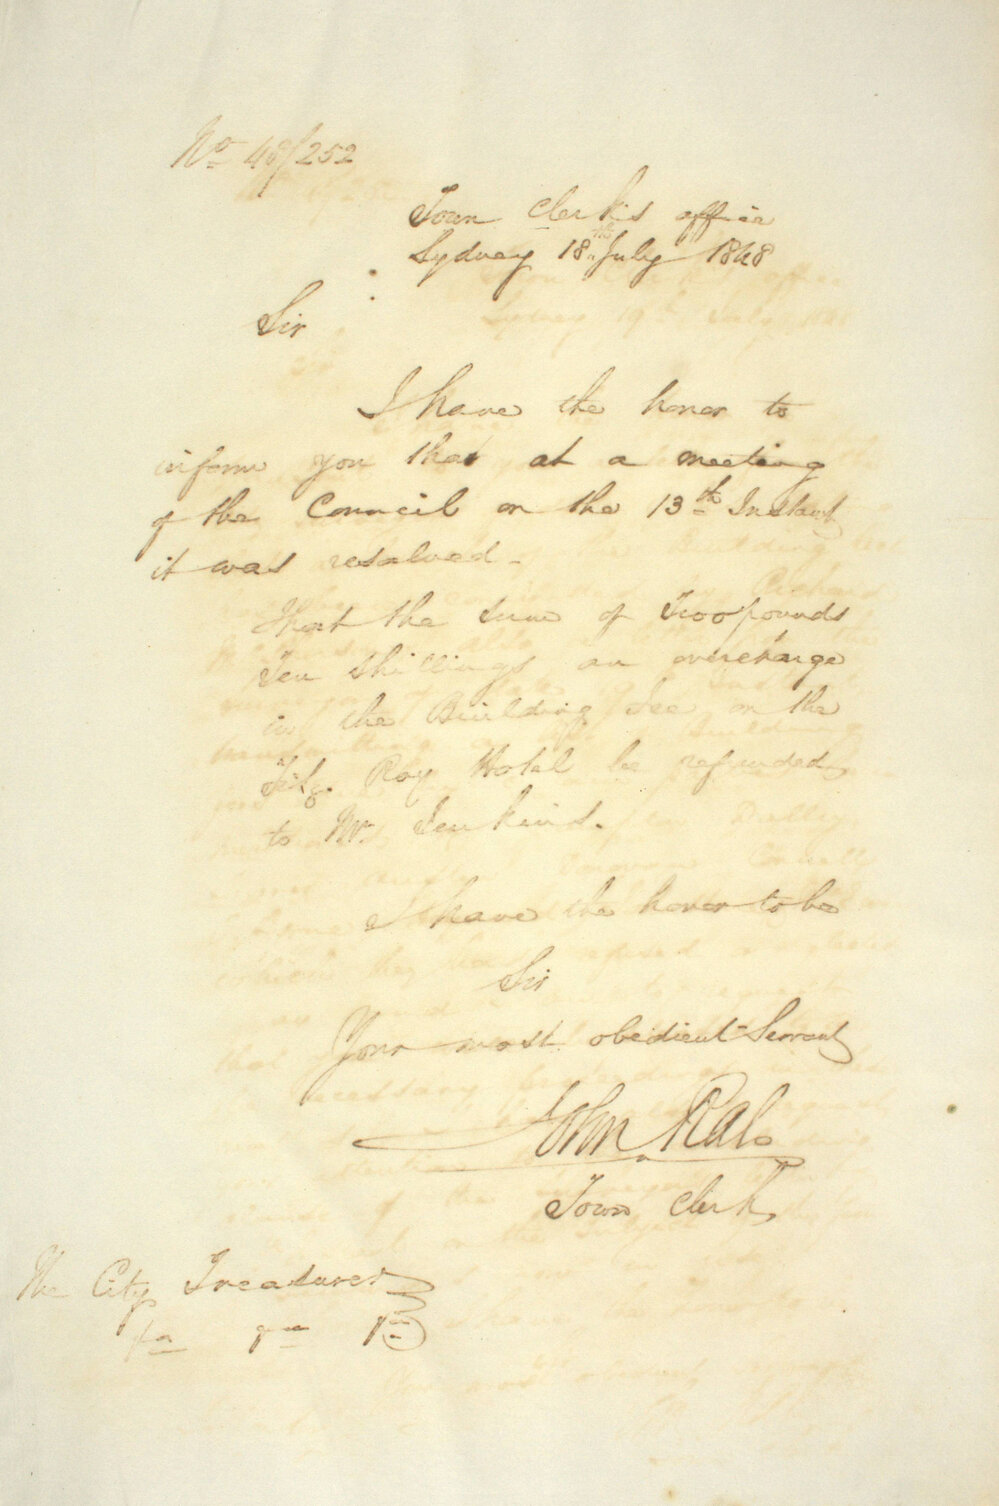 No 48/252
Town Clerk's office
Sydney 18th July 1848
Sir
I have the honor to
inform you that at a meeting
of the Council on the 13th Instant
it was resolved -
That the sum of Two pounds
Ten Shillings an overcharge
in the Building Fee on the
Fitz. Roy Hotel be refunded
to Mr. Jenkins.
I have the honor to be
Sir
Your most obedient Servant
John Rae
Town Clerk
The City Treasurer